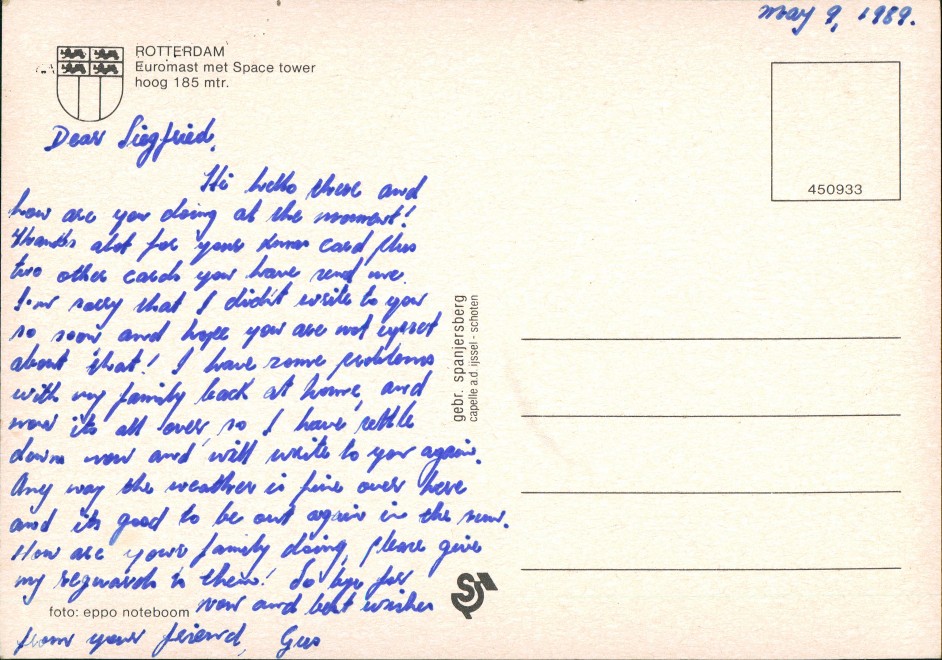 May 9, 1989.
ROTTERDAM
Euromast met Space tower
hoog 185 mtr.
450933
Dear Siegfried,
Hi hello there and
how are you doing at the moment!
Thanks alot for your card plus
two other cards you have send me.
I'm sorry that I did'nt write to you
so soon and hope you are not upset
about that! I have some problems
with my family back at home, and
now its all over, so I have settle
down now and will write to you again.
Any way the weather is fine over here
and its good to be out again in the sun.
How are your family doing, please give
my reguards to them! So bye for
now and best wishes
from your friend, Gus
foto: eppo noteboom
gebr. spanjersberg
capelle a.d. ijssel - schoten